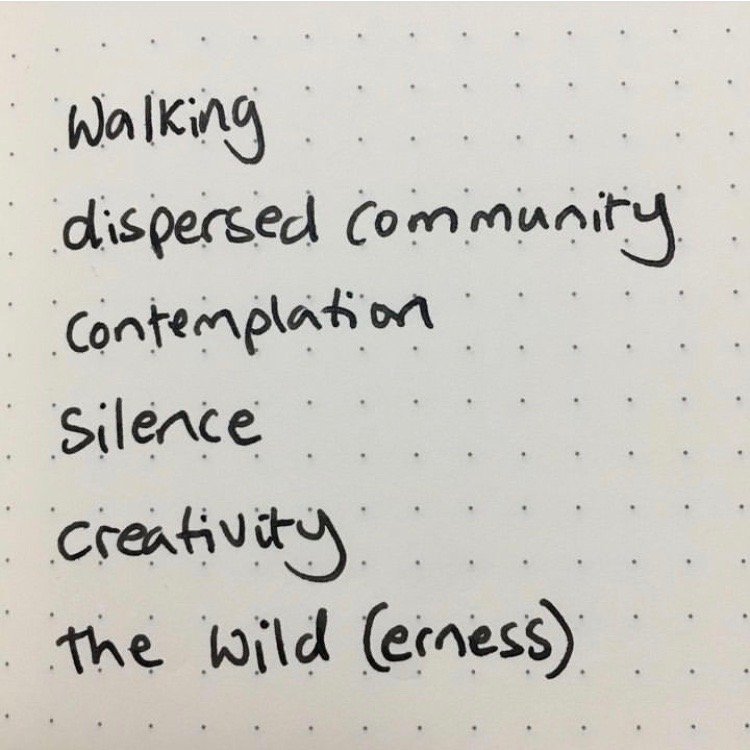 Walking
dispersed community
contemplation
Silence
creativity
the wild (erness)